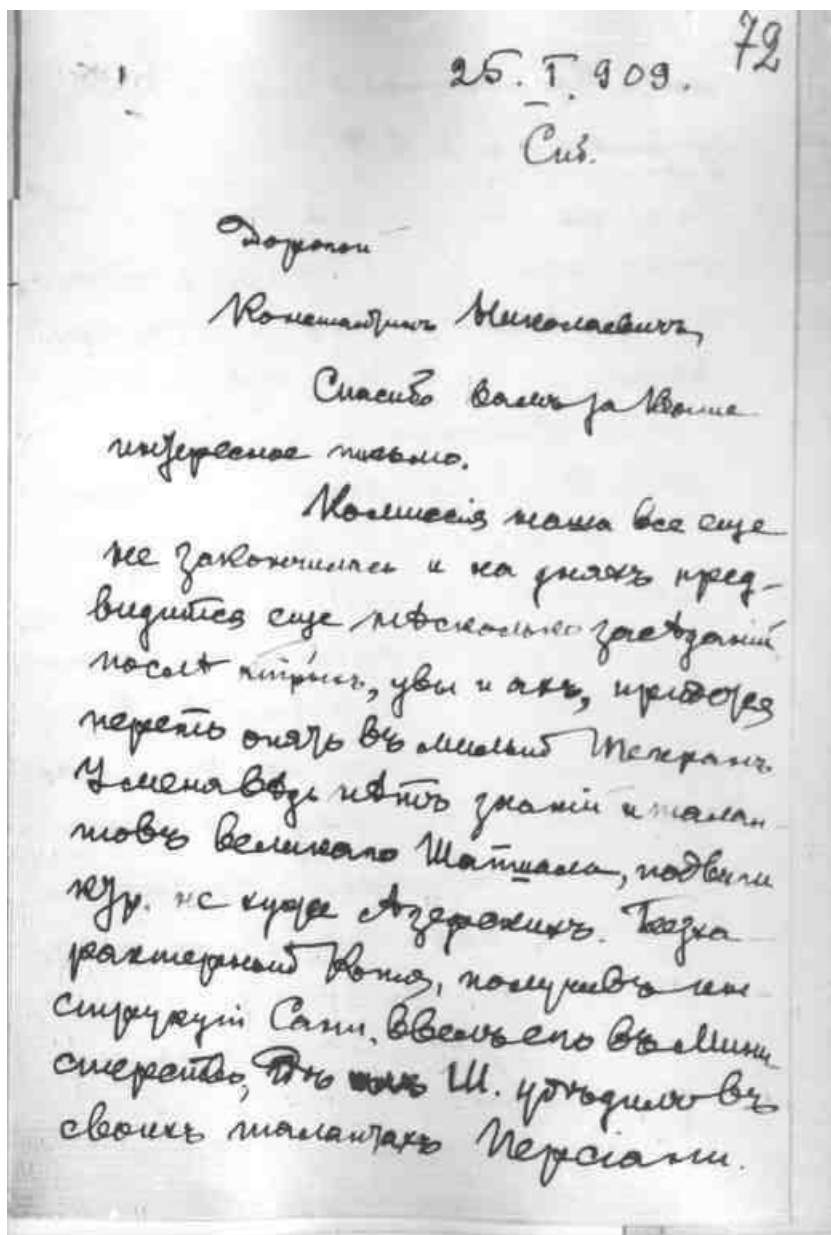 72
25. I. 909.
Спб.
Дорогой
Константинъ Николаевичъ,
Спасибо Вамъ за Ваше
интересное письмо.
Коммиссія наша все еще
не закончилась и на дняхъ пред-
видится еще нѣсколько засѣданій
послѣ, увы и ахъ, придется
переть опять въ милый Тегеранъ
У меня вѣдь нѣтъ знаній и талан
товъ великаго Шатилова, подвиги
не хуже Азефскихъ. Безха
рактерный Котя, получивъ ин
струкціи Саши, ввелъ его въ Мини
стерство, Ш. убѣдилъ въ
своихъ талантахъ Персіани.